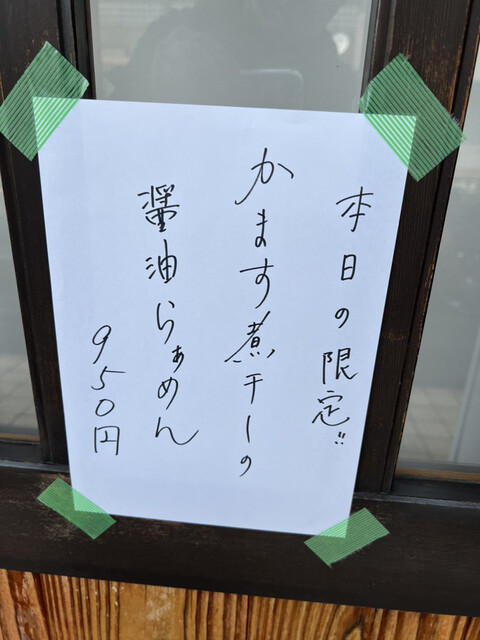 本日の限定!!
かます煮干しの
醤油らぁめん
950円